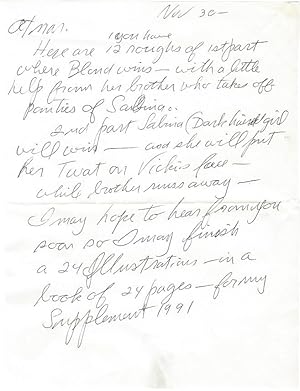 Nov 30-
Atmar. you have
Here are 12 roughs of 1st part
where Blond wins - with a little
help from her brother who takes off
panties of Sabina..
2nd part Sabina (Dark haired girl
will win - and she will put
her Twat on Vickis face -
while brother runs away -
I may hope to hear from you
soon so I may finish
a 24 Illustrations - in a
book of 24 pages - for my
Supplement 1991